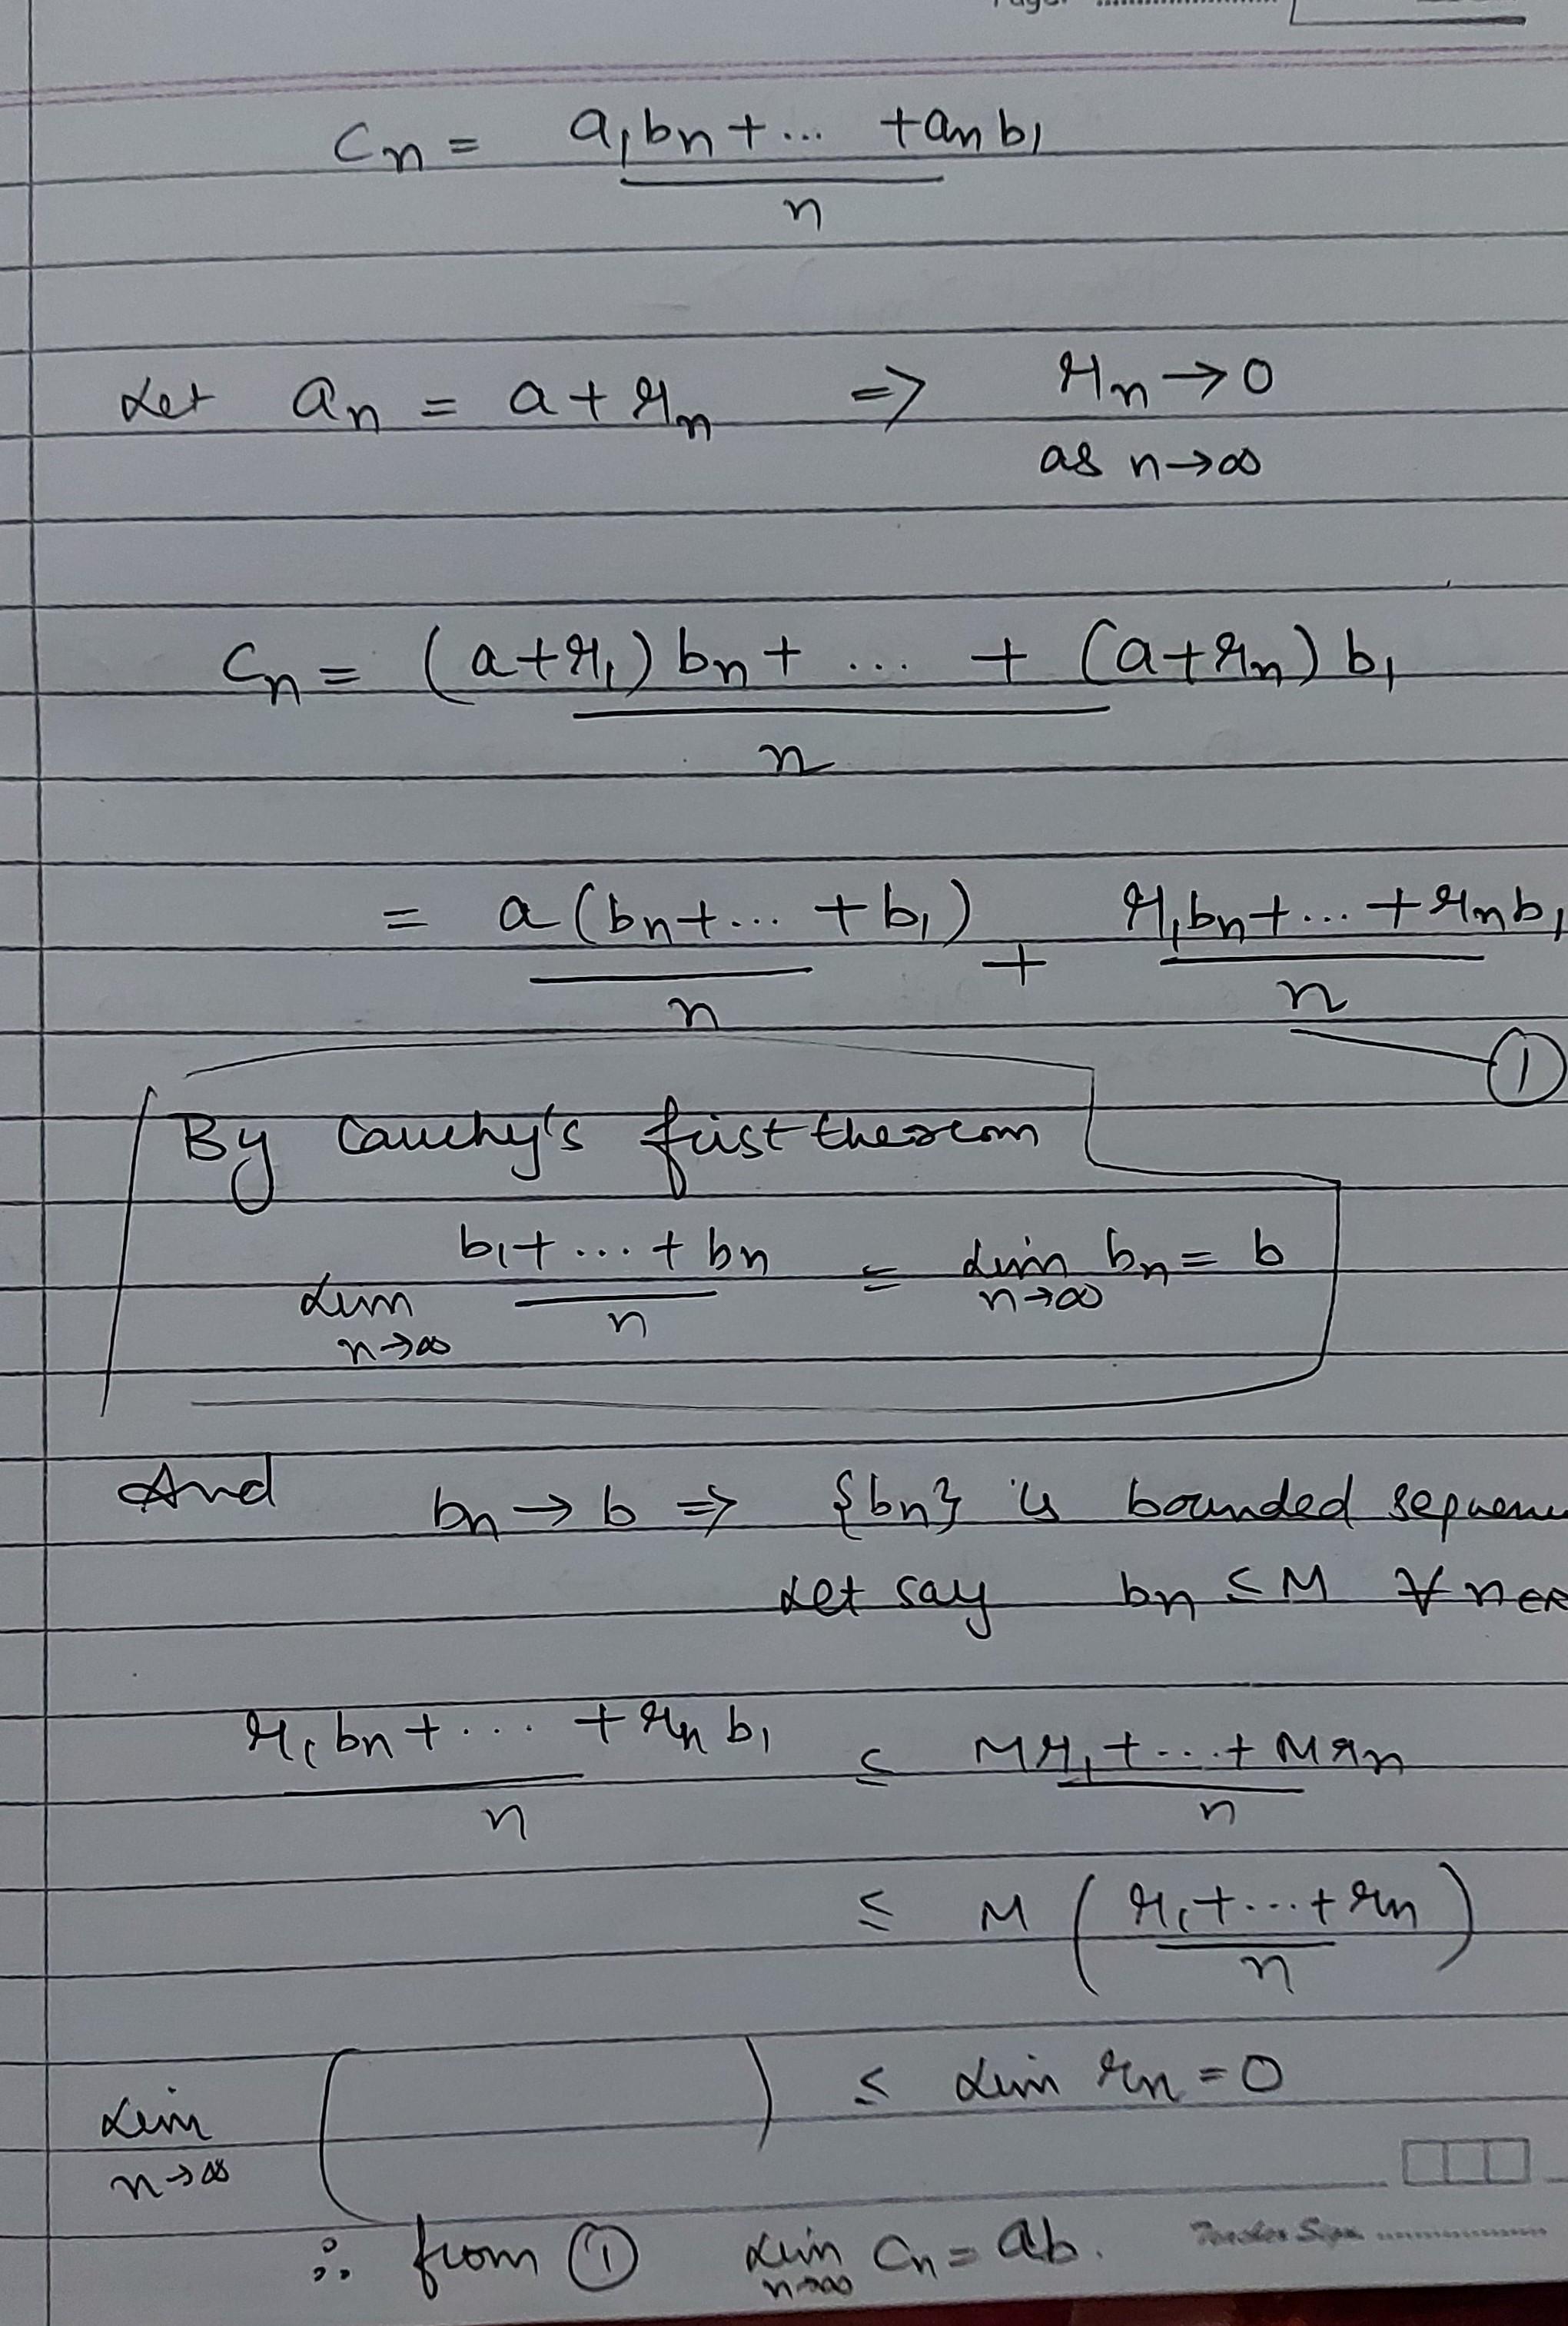 Cₙ = (a₁bₙ + ... + aₙb₁) / n
Let aₙ = a + rₙ => rₙ → 0
as n → ∞
Cₙ = ((a + r₁) bₙ + ... + (a + rₙ) b₁) / n
= a (bₙ + ... + b₁) / n + (r₁bₙ + ... + rₙb₁) / n
①
By Cauchy's first theorem
Lim n→∞ (b₁ + ... + bₙ) / n = Lim n→∞ bₙ = b
And bₙ → b => {bₙ} is bounded
Let say bₙ ≤ M ∀ n ∈
(r₁bₙ + ... + rₙb₁) / n ≤ (Mr₁ + ... + Mrₙ) / n
≤ M ((r₁ + ... + rₙ) / n)
Lim n→∞ ( ) ≤ Lim rₙ = 0
∴ from ① Lim n→∞ Cₙ = ab.
Teacher Sign